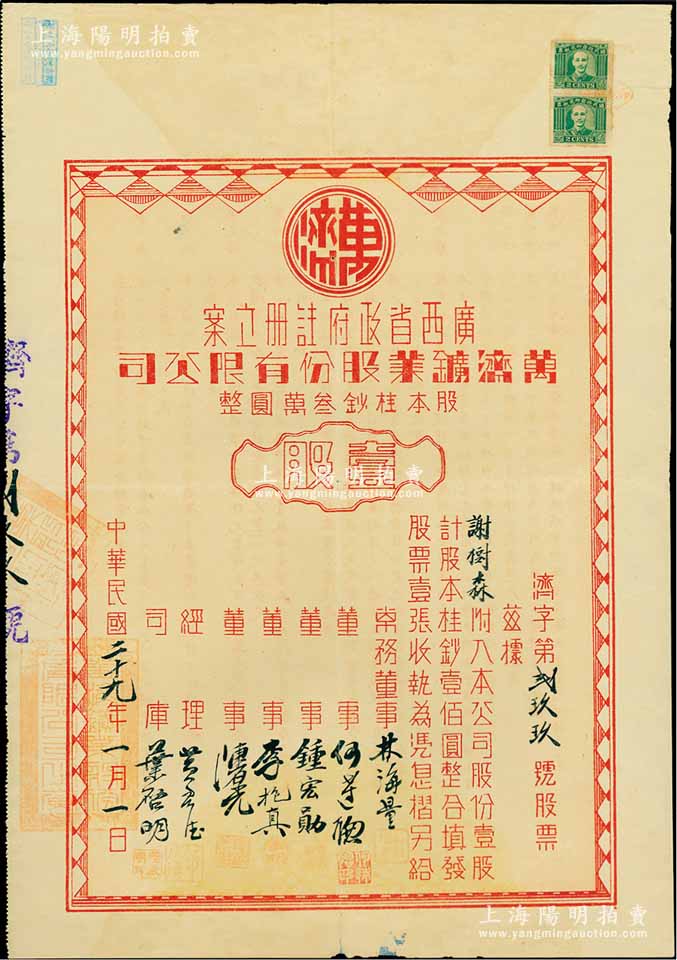 上海陽明拍賣
www.yangmingauction.com
2 CENTS
2 CENTS
萬濟
廣西省政府註册立案
萬濟鑛業股份有限公司
股本桂鈔叁萬圓整
壹股
上海陽明拍賣
www.yangmingauction.com
濟字第貳玖玖號股票
茲據
謝樹森附入本公司股份壹股
計股本桂鈔壹佰圓整合填發
股票壹張收執為憑息摺另給
常務董事 林海量
董事
董事 鍾宏勛
董事 李抱真
董事
經理
司庫 葉啓明
中華民國二十九年一月一日
濟字第
號
上海陽明拍賣
www.yangmingauction.com